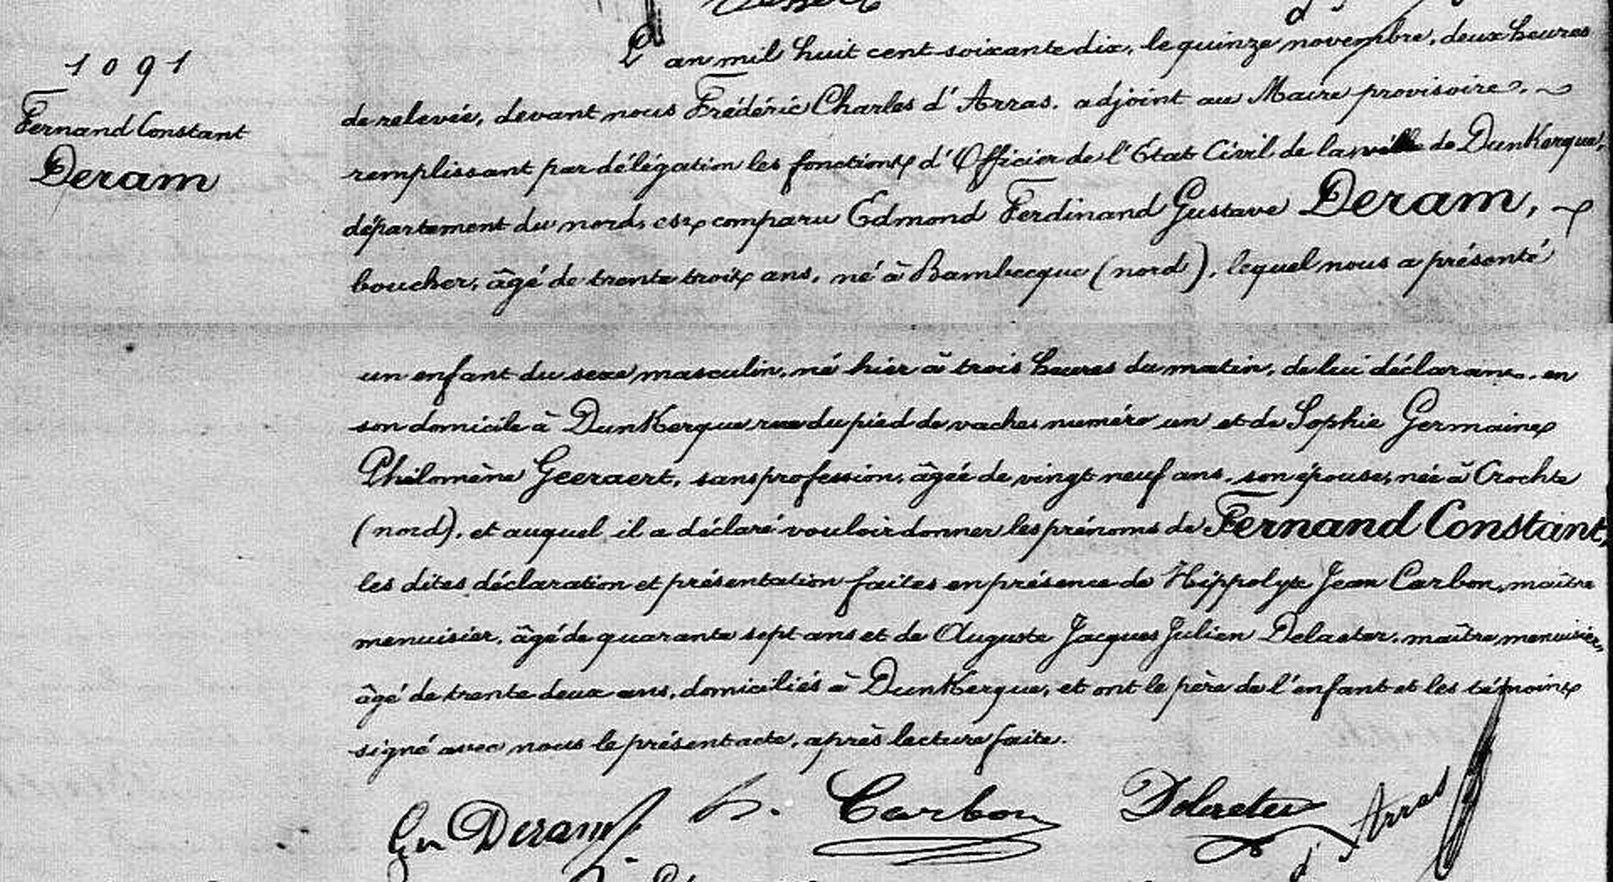 1091
Fernand Constant
Deram
L'an mil huit cent soixante dix, le quinze novembre, deux heures
de relevée, devant nous Frédéric Charles d'Arras, adjoint au Maire provisoire,
remplissant par délégation les fonctions d'Officier de l'Etat Civil de la ville de DunKerque,
département du nord, est comparu Edmond Ferdinand Gustave Deram,
boucher, âgé de trente trois ans, né à Bambecque (nord), lequel nous a présenté
un enfant du sexe masculin, né hier à trois heures du matin, de lui déclarant, en
son domicile à DunKerque rue du pied de vaches numéro un et de Sophie Germaine
Philomène Geeraert, sans profession, âgée de vingt neuf ans, son épouse, née à Crochte
(nord), et auquel il a déclaré vouloir donner les prénoms de Fernand Constant,
les dites déclaration et présentation faites en présence de Hippolyte Jean Carbon, maître
menuisier, âgé de quarante sept ans et de Auguste Jacques Julien Delaeter, maître menuisier,
âgé de trente deux ans, domiciliés à DunKerque, et ont le père de l'enfant et les témoins
signé avec nous le présent acte, après lecture faite.
Deram h. Carbon Delaeter d'Arras